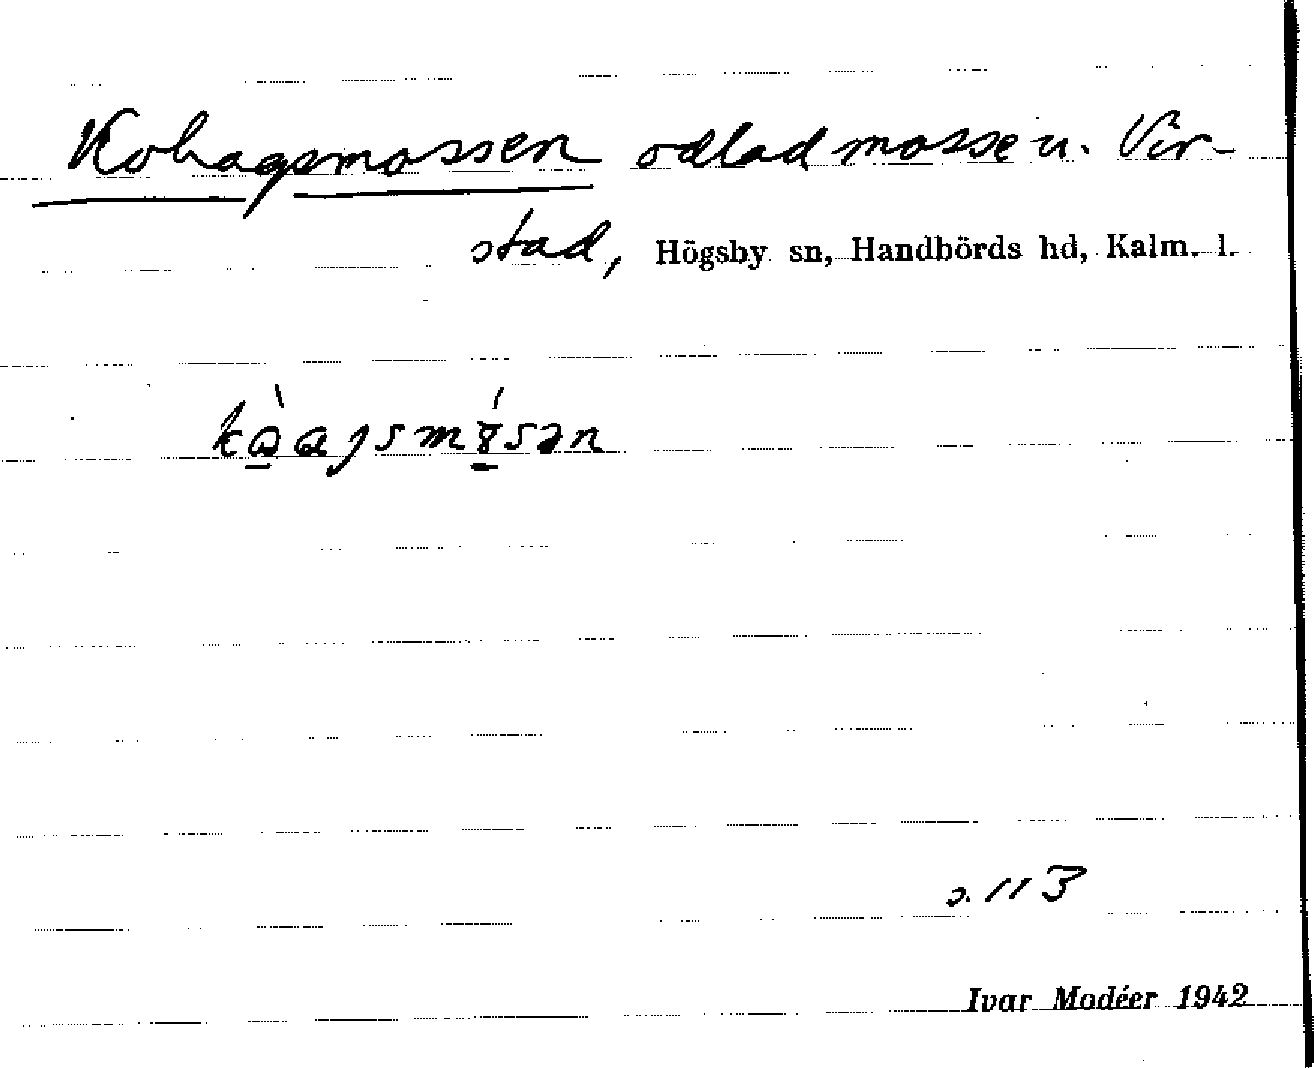 Kohagsmossen odlad mosse u. Vir-
stad, Högsby sn, Handbörds hd, Kalm. l.
s. 113
Ivar Modéer 1942